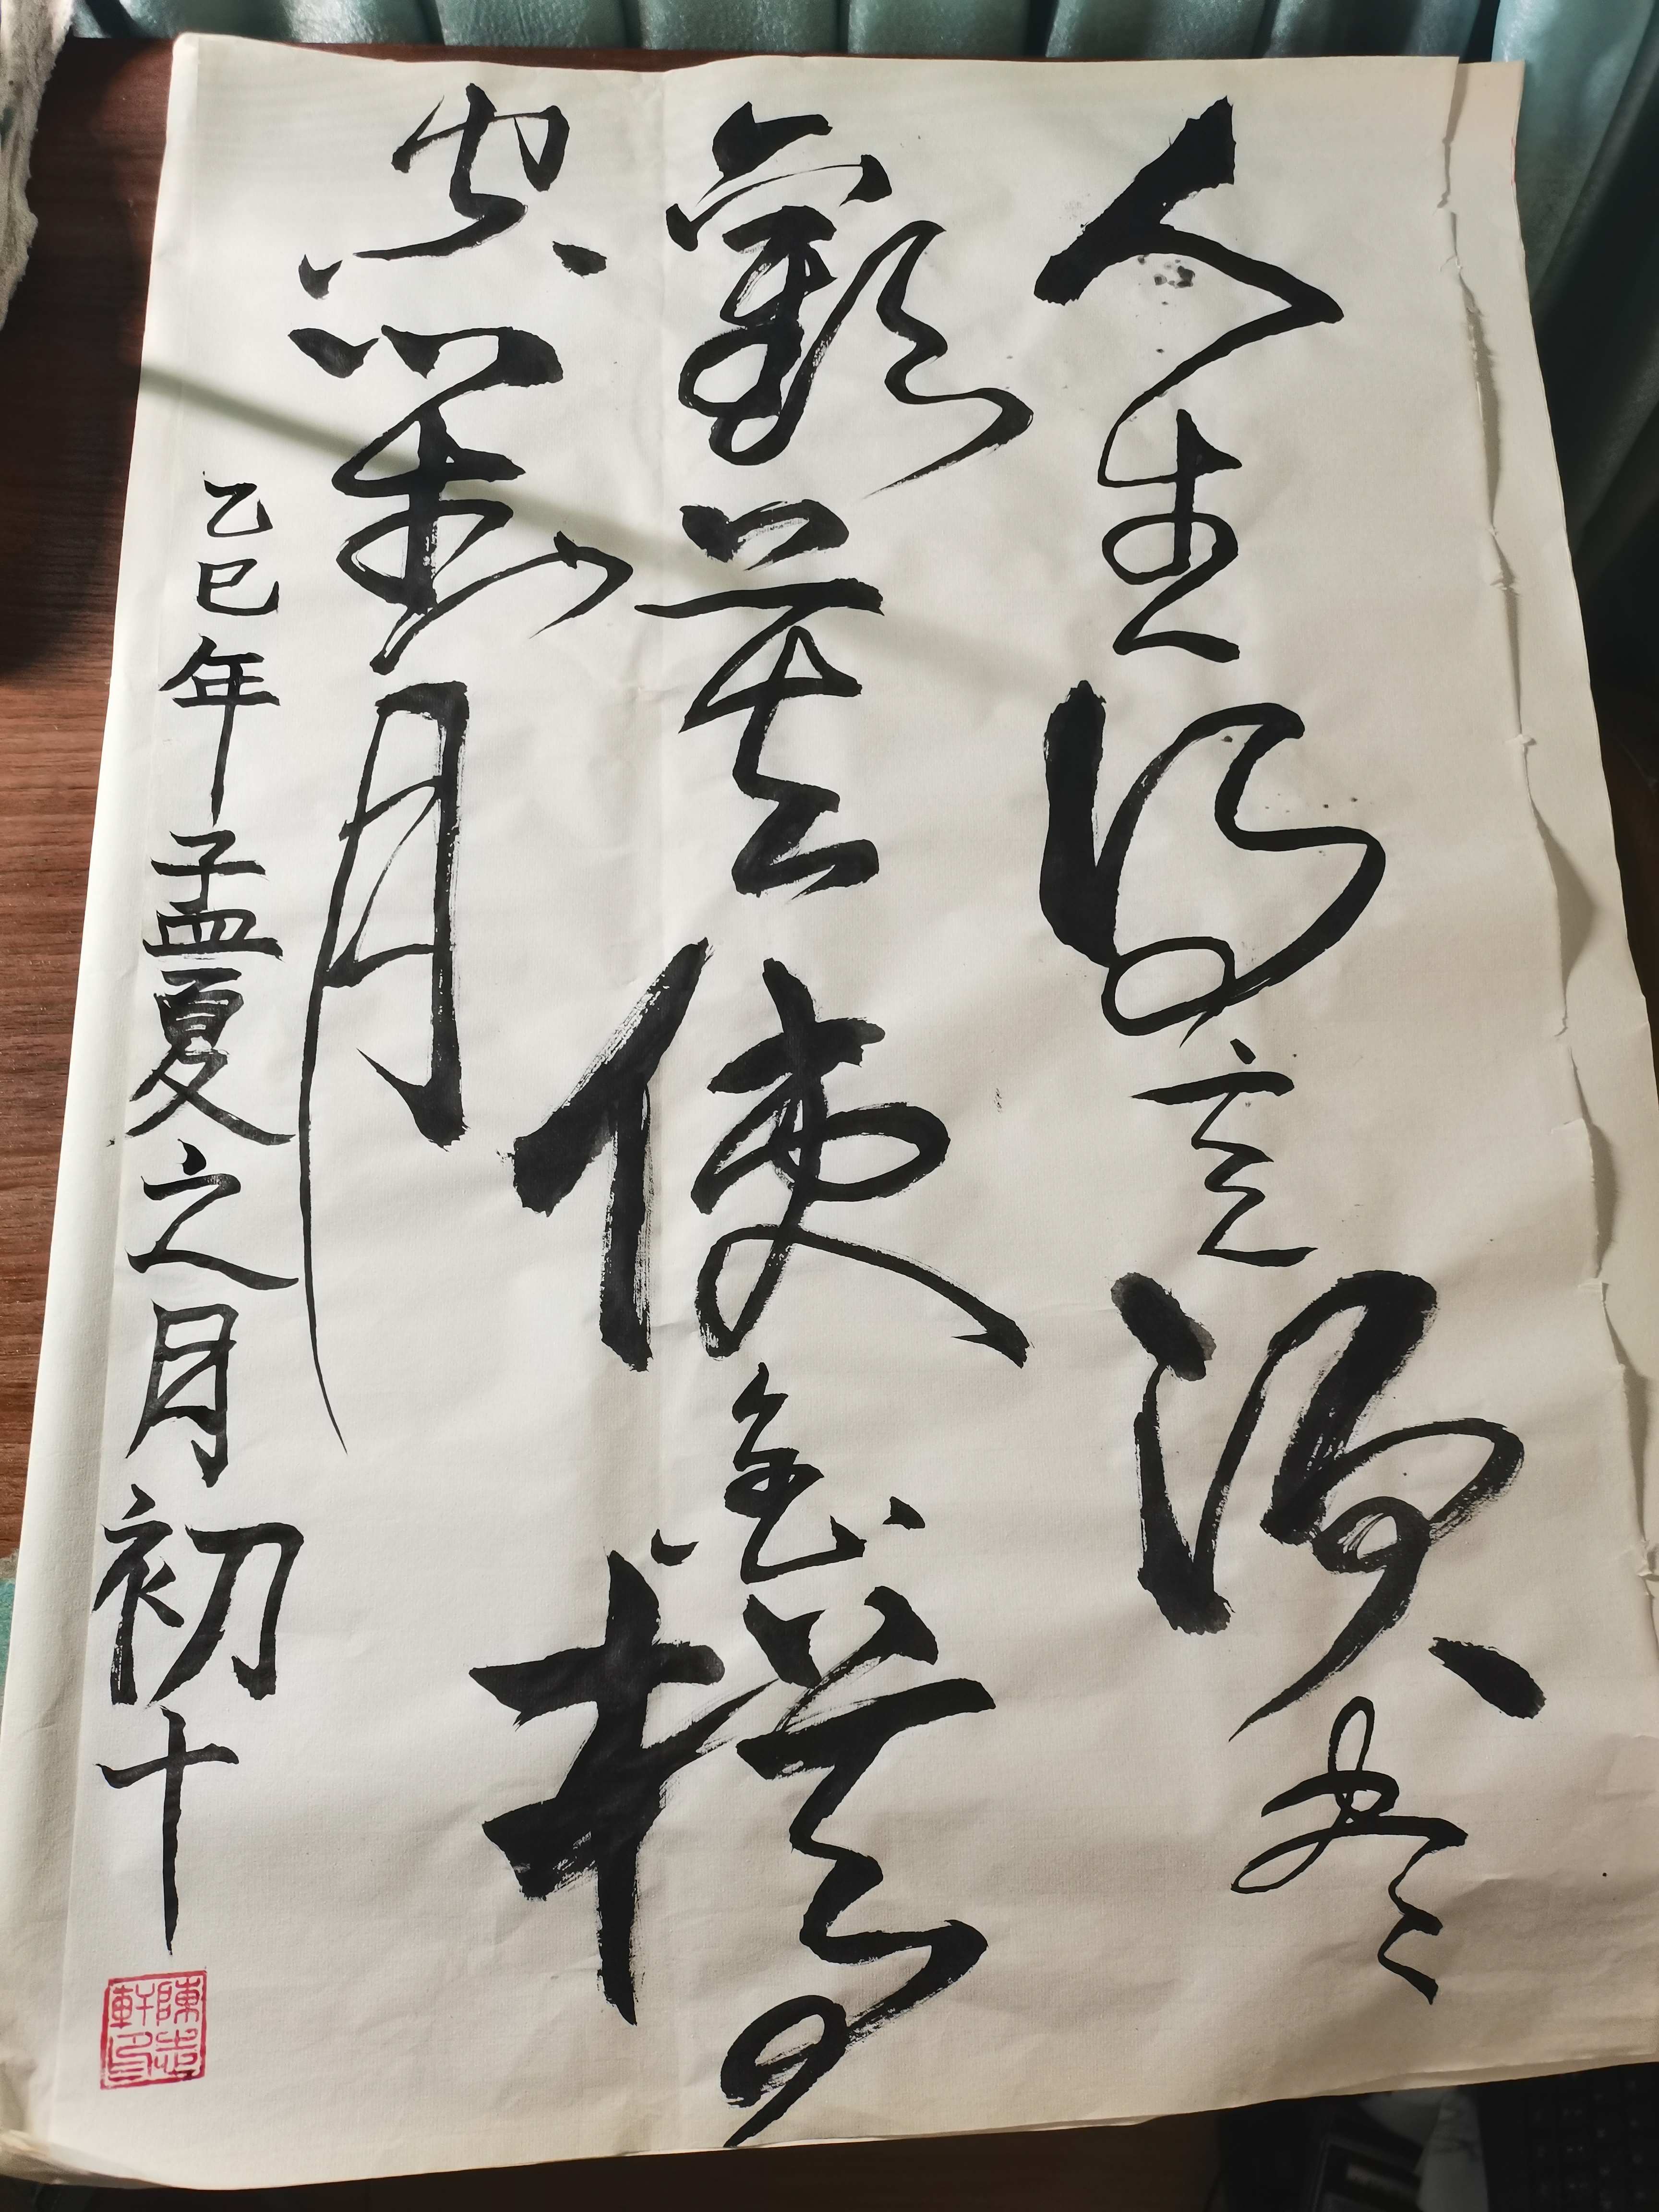 人生得意须尽
歡莫使金樽
空對月
乙巳年孟夏之月初十
陳步軒印